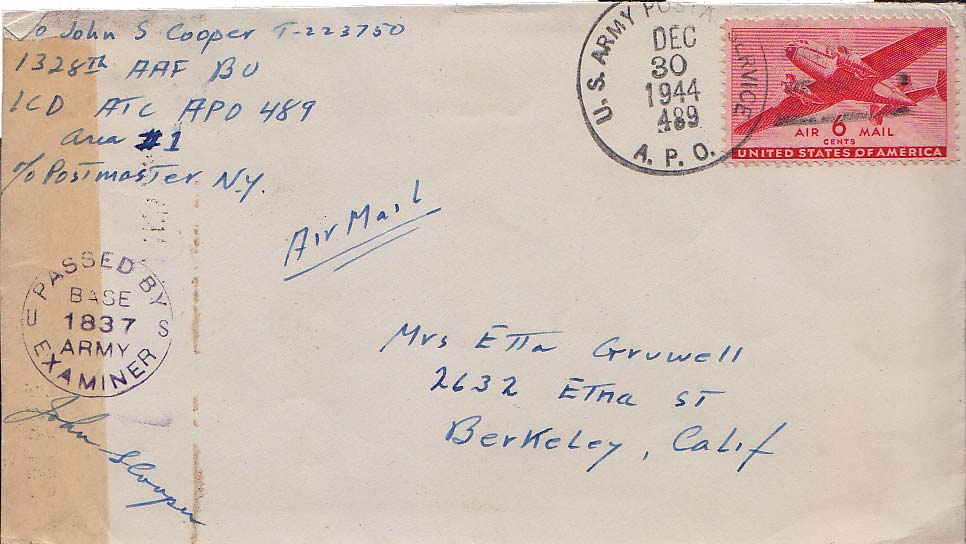 F/O John S Cooper T-223750
1328th AAF BU
ICD ATC APO 489
Area #1
c/o Postmaster N.Y.
U.S. ARMY POSTAL SERVICE
DEC
30
1944
489
A. P. O.
AIR 6 MAIL
CENTS
UNITED STATES OF AMERICA
Air Mail
PASSED BY
BASE
U 1837 S
ARMY
EXAMINER
John S Cooper
Mrs Etta Gruwell
2632 Etna St
Berkeley, Calif